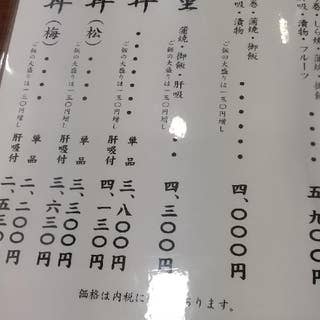 巻・しら焼
吸・漬物・フルーツ
巻・蒲焼・御飯
吸・漬物
四、〇〇〇円
重
蒲焼・御飯 肝吸
ご飯の大盛りは一五〇円増し
四、三〇〇円
丼
ご飯の大盛りは一五〇円増し
単品 三、八〇〇円
肝吸付 四、一三〇円
丼（松）
ご飯の大盛りは一五〇円増し
単品 三、三〇〇円
肝吸付 三、六三〇円
丼（梅）
ご飯の大盛りは一五〇円増し
単品 二、二〇〇円
肝吸付 二、五三〇円
価格は内税に あります。